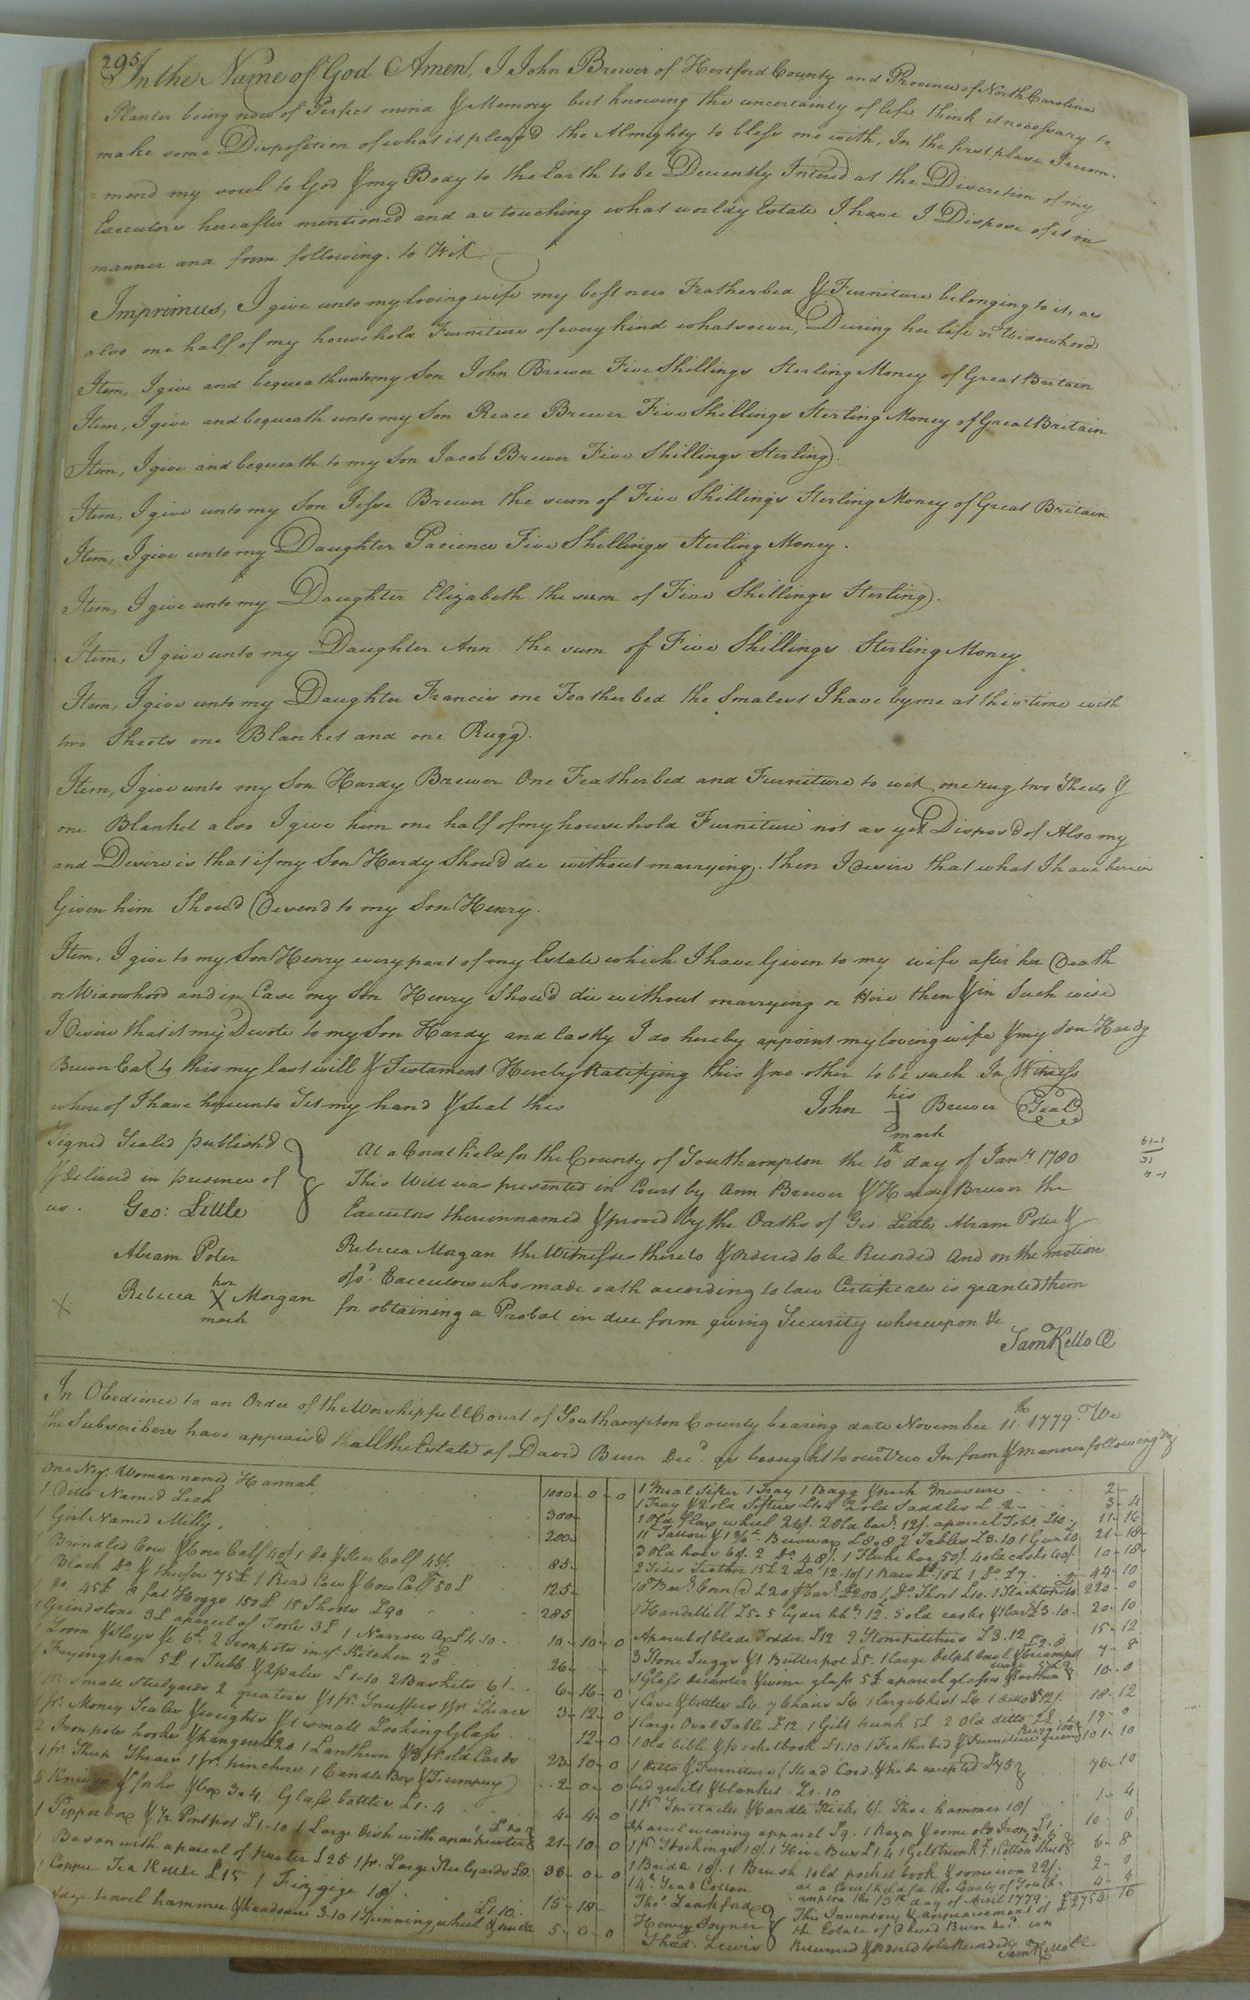 295
In the Name of God Amen, I John Brewer of Hertford County and Province of North Carolina
Planter being now of Perfect mind & Memory but knowing the uncertainty of life think it necessary to
make some Disposition of what it pleas'd the Almighty to bless me with, In the first place I recom-
=mend my soul to God & my Body to the Earth to be Decently Intered at the Discretion of my
Executors hereafter mentioned and as touching what worldy Estate I have I Dispose of it in
manner and form following. to Wit
Imprimus, I give unto my loving wife my best new Featherbed & Furniture belonging to it, as
also one half of my household Furniture of every kind whatsoever, During her life or Widowhood
Item, I give and bequeath unto my Son John Brewer Five Shillings Sterling Money of Great Britain
Item, I give and bequeath unto my Son Reace Brewer Five Shillings Sterling Money of Great Britain
Item, I give and bequeath to my Son Jacob Brewer Five Shillings Sterling.
Item, I give unto my Son Jesse Brewer the sum of Five Shillings Sterling Money of Great Britain
Item, I give unto my Daughter Pacience Five Shillings Sterling Money.
Item, I give unto my Daughter Elizabeth the sum of Five Shillings Sterling.
Item, I give unto my Daughter Ann the sum of Five Shillings Sterling Money
Item, I give unto my Daughter Francis one Featherbed the Smalest I have by me at this time with
two Sheets one Blanket and one Rugg.
Item, I give unto my Son Hardy Brewer One Featherbed and Furniture to wit, one rug two Sheets &
one Blanket also I give him one half of my household Furniture not as yet Dispos'd of Also my
and Desire is that if my Son Hardy Shou'd die without marrying, then I desire that what I have herein
Given him Shou'd Decend to my Son Henry.
Item, I give to my Son Henry every part of my Estate which I have Given to my wife after her Death
or Widowhood and in Case my Son Henry Shou'd die without marrying or then & in Such wise
I Desire that it my Devote to my Son Hardy and lastly I do hereby appoint my loving wife & my Son Hardy
Brewer to this my last will & Testament Hereby Ratifying this & no other to be such In Witness
whereof I have hereunto Set my hand & Seal this
John his mark Brewer Seal
Signed Sealed publish'd
& Deliver'd in presence of
us.
Geo: Little
Abram Poter
Rebecca her X mark Morgan
At a Court held for the County of Southampton the 10th day of Jany. 1780
This Will was presented in Court by Ann Brewer & Hardy Brewer the
Executors therein named & proved by the Oaths of Geo. Little Abram Poter &
Rebecca Morgan the Witnesses thereto & Ordered to be Recorded And on the motion
of sd. Executors who made oath according to law Certificate is granted them
for obtaining a Probat in due form giving Security whereupon &c
Sam Kello C
In Obedience to an Order of the Worshipfull Court of Southampton County bearing date November 11th 1779. We
the Subscribers have apprais'd all the Estate of David Burn Decd. as brought to our View In form & manner following Viz
One Neg. Woman named Hannah 1000-0-0
1 Ditto Named Leah 300-
1 Girl Named Milly 200-
1 Brindled Cow & Cow Calf 40£ 1 do & Steer Calf 45£ 85-
1 Black Do & heifer 75£ 1 Read Cow & Cow Calf 50£ 125-
1 do. 45£ 9 fat Hoggs 150£ 15 Shoats £90 285
1 Grindstone 3£ a parcel of Tools 3£ 1 Narrow Ax £4.10. 10-10-0
1 Loom & Slays &c 6£. 2 iron pots in ye Kitchen 26-
1 Fryingpan 5£ 1 Tubb & 2 pales £1-10 2 Baskets 6/. 6-16-0
1 pr. small Steelyards 2 graters & 1 pr. Snuffers 1 pr. Shears 3-12-0
1 pr. Money Scales & weights & 1 small Looking Glass 12-0
2 Iron pots hooks & hangers £20 1 Lanthern & 3 pr. old Cards 23-10-0
1 pr. Sheep Shears 1 pr. pinchers 1 Candle Box & Trumpery 2-0-0
5 Knives & forks & box 3.4. Glass bottles £1.4 4-4-0
1 Pepperbox & 1/2 Pint pot £1-10 1 Large dish with a parcel 21-10-0
1 Bason with a parcel of pewter £25 1 pr. Large Steelyards 30-0-0
1 Copper Tea Kettle £15 1 Figgige 18/. 15-18-
hammer & handsaw 3.10 1 Spinning wheel £1.10. 5-0-0
1 Meal Sifter 1 Tray 1 Bagg & peck Measure 2-
1 Tray & 2 old Sifters £1.4 2 old Saddles £.2- 3-4
1 Old flax wheel 24/. 2 Old bar. 12/. a parcel Tob. £10. 11-16
11 Tallow & Beeswax £8.8 2 Tables £3.10 1 Gun £10 21-18-
3 Old hoes 6/. 2 Do. 48/. 1 Fluke hoe 50/. 4 old casks 60/. 10-18-
2 Sides Leather 15£ 2 do 12.10/ 1 Raw do. 10£ 1 Do £7 44-10
10 Bar. Corn 220-0
1 Handmill £5-5 Cyder hhds 12£. 5 old casks & 1 bar. £3-10. 20-10
A parcel of blade Fodder £12 2 Stone pitchers £3.12 15-12
3 Stone Juggs & 1 Butter pot £5. 1 large Delph bowl & 7-8
1 Glass decanter & wine glass 5£ a parcel glasses 10-0
1 Case & bottles £6. 7 Chairs £6 1 large Chest £6 1 ditto £12/. 18-12
1 large Oval Table £12 1 Gilt trunk 5£ 2 Old ditto £2. 19-0
1 Old bible & pocketbook £1.10 1 Featherbed & Furniture 101-10
1 ditto & Furniture (Stead Cord & hide excepted £75 76-10
bed quilt & blanket £1.10
1 pr. Spectacles & Candle Sticks 6/. Shoe hammer 18/ 1-4
A parcel wearing apparel £9. 1 Razor & some old Iron £1. 10-0
1 pr. Stockings 18/. 1 Hive Bees £1.4 1 Gilt trunk 1 Cotton 6-8
1 Bridle 18/. 1 Brush 1 old pocket book & some iron 22/. 2-0
14 Seed Cotton 4-4
£2754.16
Thos. Lankford
Henry Joyner
Thad. Lewis
at a Court held for the County of South-
ampton the 13th day of April 1779.
This Inventory & appraisement of
the Estate of David Burn Decd. was
Returned & Ordered to be Recorded
Sam Kello C